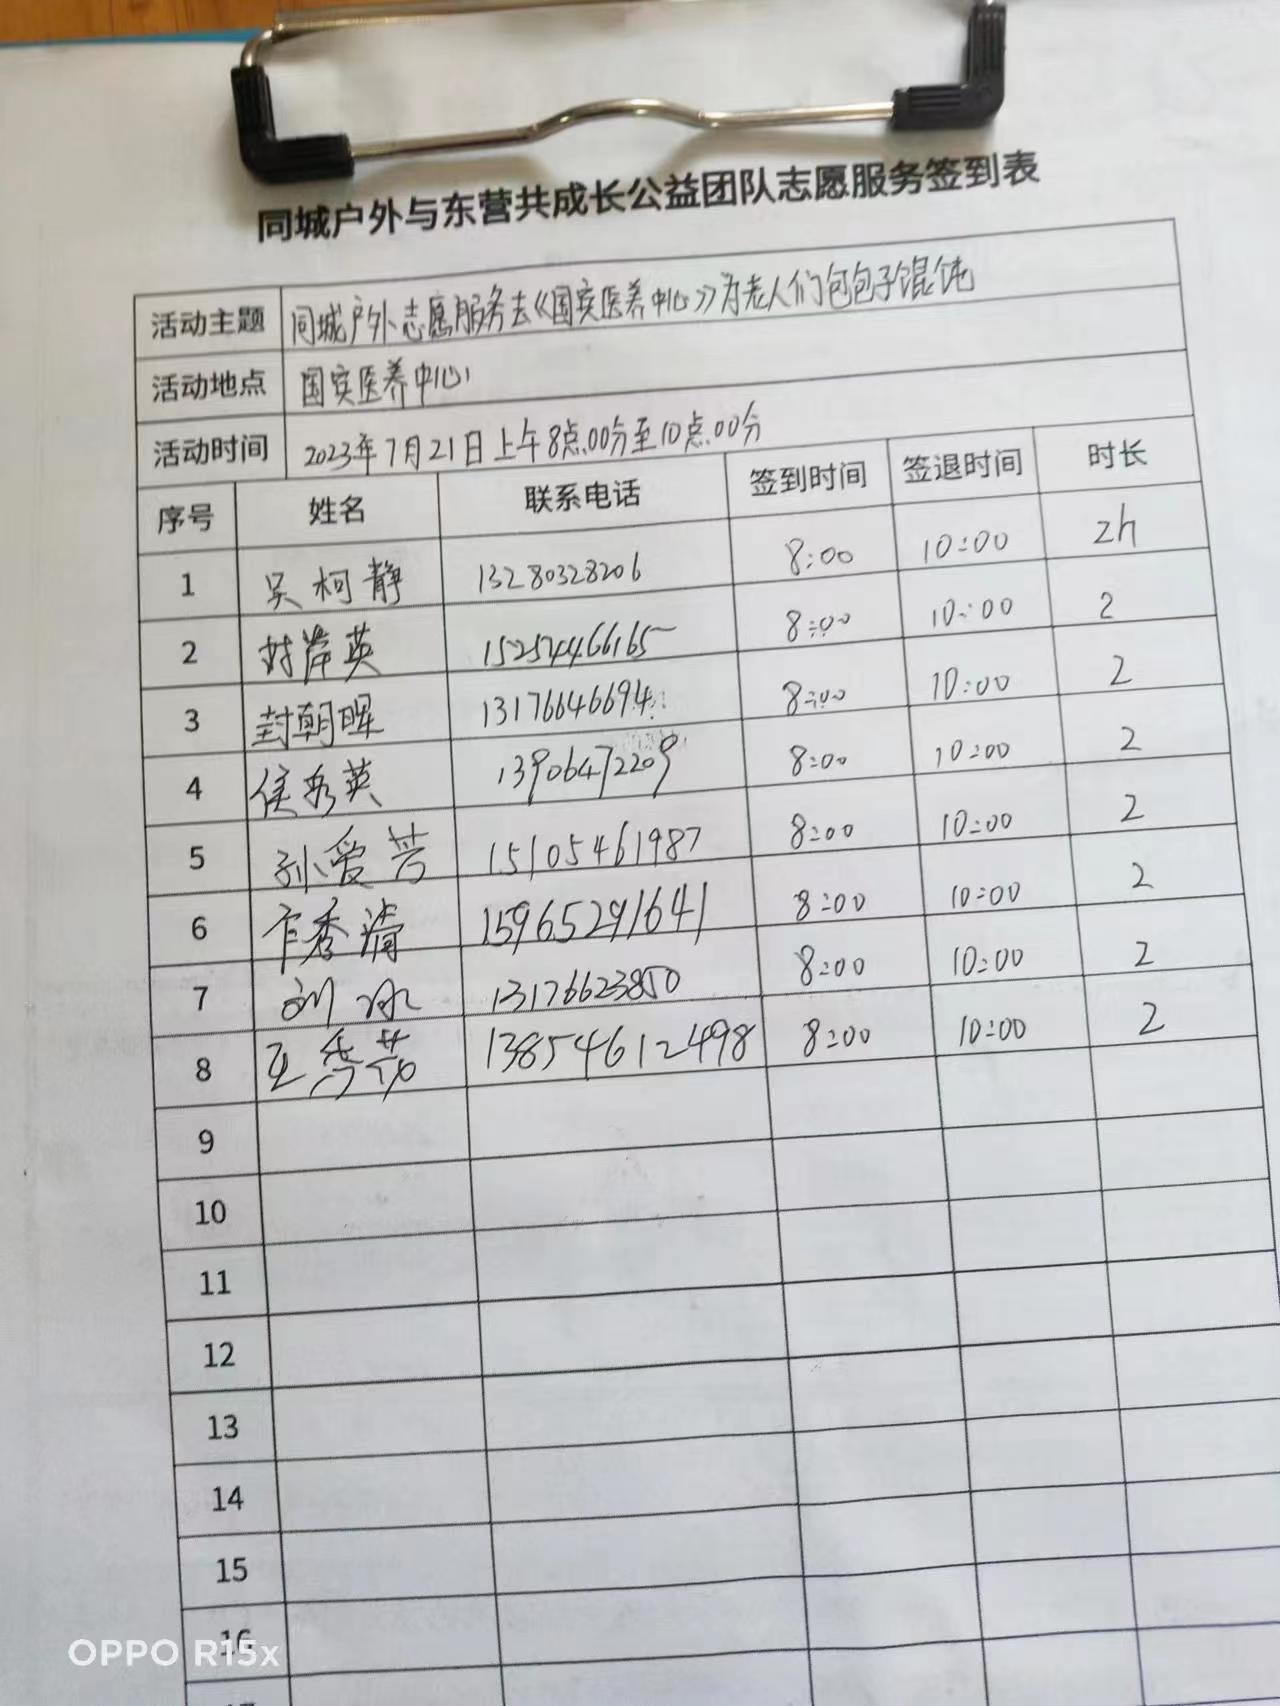 同城户外与东营共成长公益团队志愿服务签到表
活动主题 同城户外志愿服务去《国安医养中心》为老人们包包子馄饨
活动地点 国安医养中心
活动时间 2023年7月21日上午8点00分至10点00分
序号 姓名 联系电话 签到时间 签退时间 时长
1 吴柯静 13280328206 8:00 10:00 2h
2 英 15254466165 8:00 10:00 2
3 封朝晖 13176646694 8:00 10:00 2
4 侯秀英 13906472209 8:00 10:00 2
5 孙爱芳 15105461987 8:00 10:00 2
6 秀清 15965291641 8:00 10:00 2
7 刘冰 13176623850 8:00 10:00 2
8 王秀芬 13854612498 8:00 10:00 2
9
10
11
12
13
14
15
16
OPPO R15x